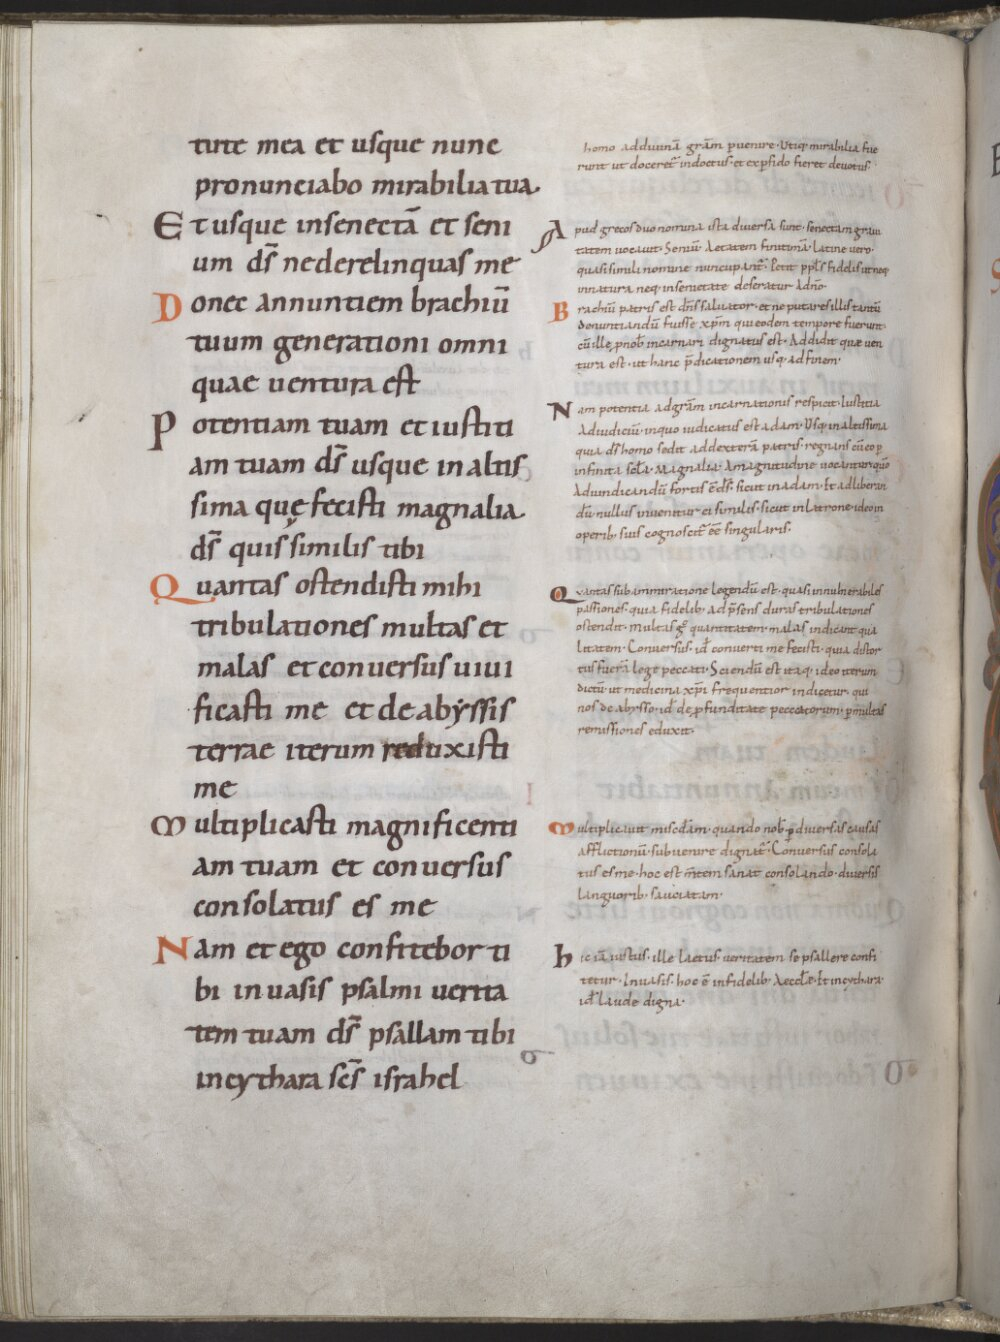 tute mea et usque nunc
pronunciabo mirabilia tua.
Et usque insenectā et seni
um dſ̄ nederelinquas me
Donec annuntiem brachiū
tuum generationi omni
quae uentura est
Potentiam tuam et iustiti
am tuam dſ̄ usque in altis
sima que fecisti magnalia.
dſ̄ quis similis tibi
Quantas ostendisti mihi
tribulationes multas et
malas et conuersus uiui
ficasti me et de abẏssis
terrae iterum reduxisti
me
Multiplicasti magnificenti
am tuam et conuersus
consolatus es me
Nam et ego confitebor ti
bi inuasis psalmi uerita
tem tuam dſ̄ psallam tibi
incythara scſ̄ israhel
homo addiuinā grām puenire. Utiq; mirabilia fue
runt ut doceret indoctus. et ex pfido fieret deuotus.
Apud grecos duo nomina ista diuersa sunt. senectam graui
tatem uocauit. Seniū. Aetatem finitimā. Latine uero.
quasi simili nomine nuncupant. Petit ppls fidelis ut neq;
innatura neq; insenectate deseratur Adno.
Brachiū patris est dns saluator. et ne putares illis tantū
denuntiandū fuisse xpm qui eodem tempore fuerunt.
cū ille pnob incarnari dignatus est. Addidit quae uen
tura est. ut hanc pdicationem usq; ad finem.
Nam potentia adgrām incarnationis respicit. Iustitia
Adiudiciū. inquo iudicatus est adam. Usq; in altissima
quia ds homo sedit addexterā patris. regnans cū eo p
infinita scla. Magnalia. Amagnitudine uocantur. quō
Adiudicandū fortis ē ds. sicut in adam. Et adliberan
dū nullus inuenitur ei similis. sicut in latrone. ideo in
operib; suis cognoscit eē singularis.
Quantas sub ammiratione legendū est. quasi innumerabiles
passiones. quia fidelib; ad psens duras tribulationes
ostendit. Multas g quantitatem. malas indicant qua
litatem. Conuersus. id conuerti me fecisti. quia distor
tus fuerā lege peccati. Sciendū est itaq; ideo iterum
dictū ut medicina xpi frequentior indicetur. qui
nos de abysso. id de pfunditate peccatorum. p multas
remissiones eduxit.
Multiplicauit misc̄dam. quando nob p diuersas causas
afflictionū. subuenire dignat. Conuersus consola
tus es me. hoc est mtem sanat consolando. diuersis
languorib; sauciatam.
hic iā iustus. ille laetus ueritatem se psallere confi
tetur. Inuasis. hoc ē infidelib; Aeccle. Et incythara
id laude digna.